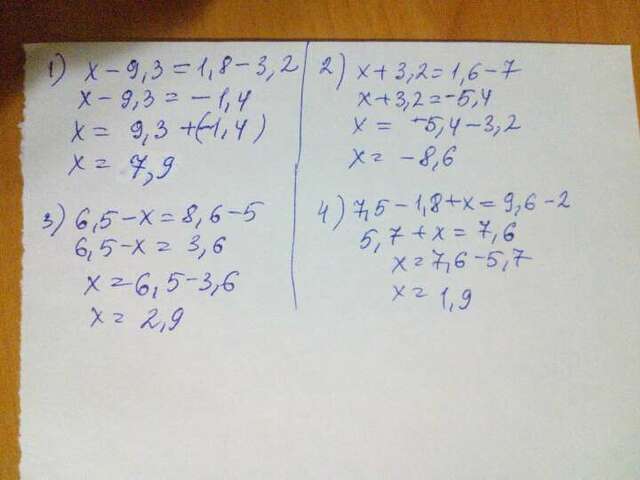 1) x - 9,3 = 1,8 - 3,2
x - 9,3 = - 1,4
x = 9,3 + (-1,4)
x = 7,9
2) x + 3,2 = 1,6 - 7
x + 3,2 = -5,4
x = -5,4 - 3,2
x = -8,6
3) 6,5 - x = 8,6 - 5
6,5 - x = 3,6
x = 6,5 - 3,6
x = 2,9
4) 7,5 - 1,8 + x = 9,6 - 2
5,7 + x = 7,6
x = 7,6 - 5,7
x = 1,9